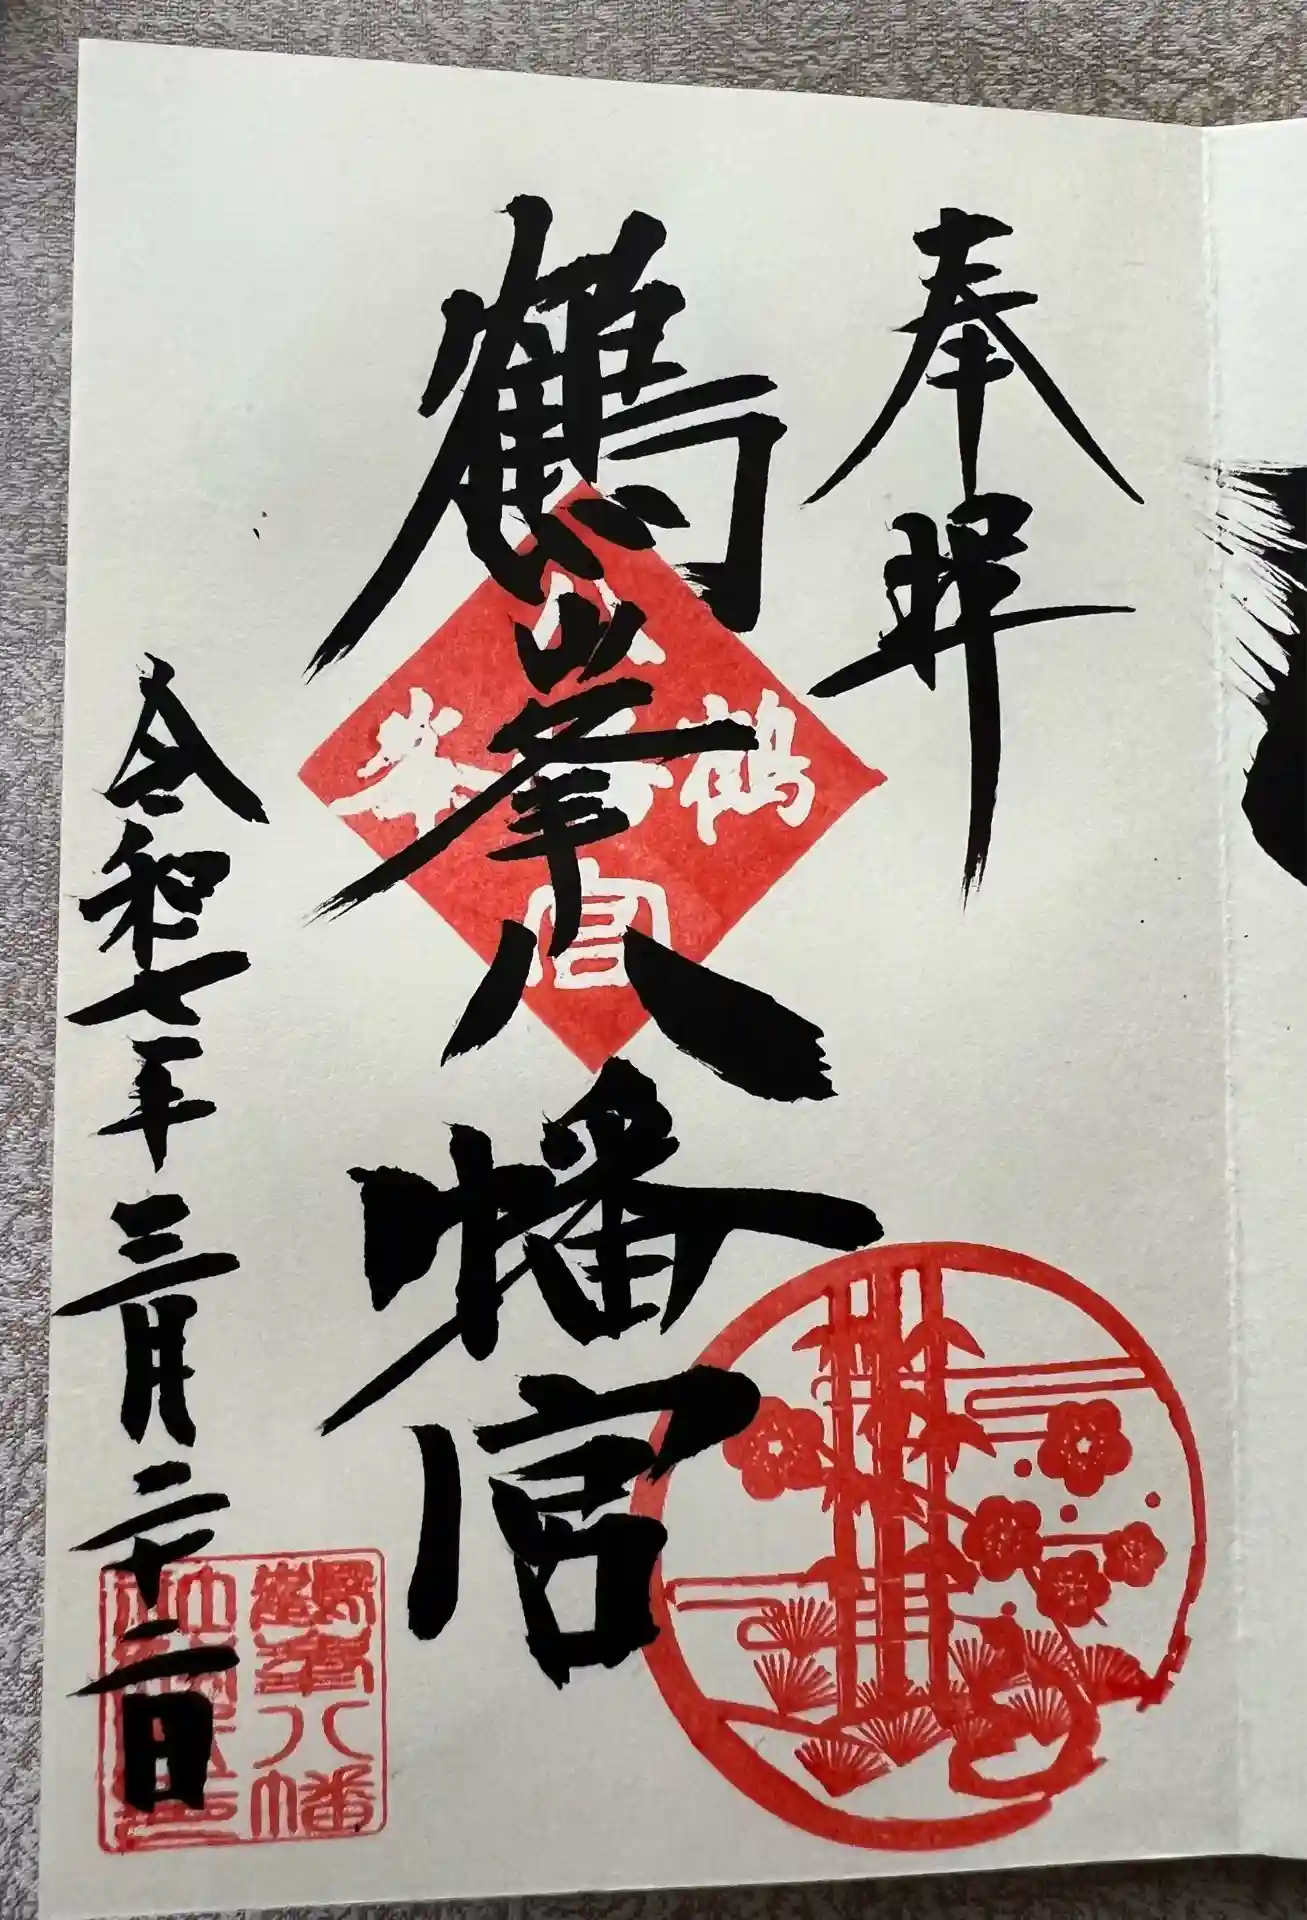 奉拝
鶴峯八幡宮
令和七年三月二十二日
鶴
峯
宮
鶴峯八幡